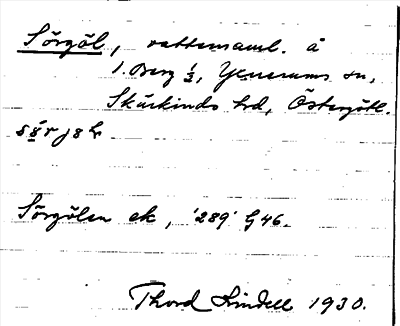 Sörgöl, vattensaml. å
1. Berg ½, Yxnerums sn,
Skärkinds hrd, Östergötl.
Sörgölen ek, '289' G46.
Thord Lindell 1930.